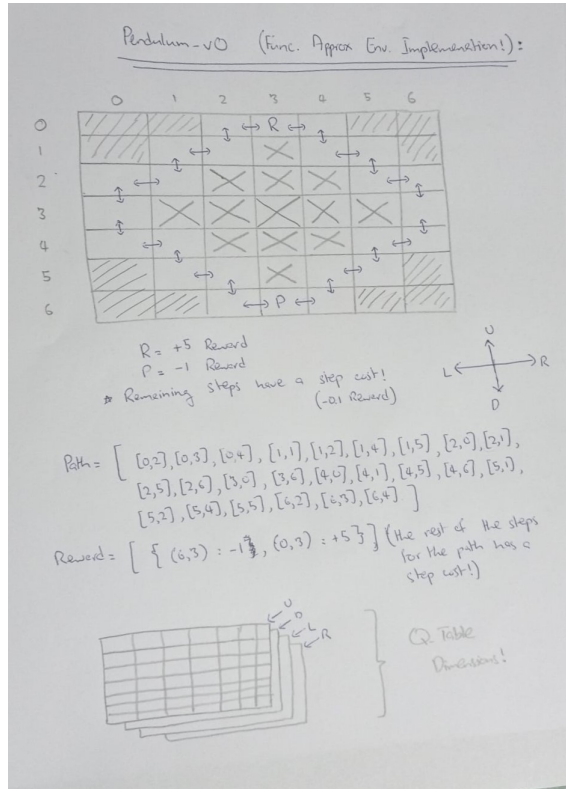 Pendulum-v0 (Func. Approx Env. Implemenation!):
0 1 2 3 4 5 6
0 R
1
2
3
4
5
6 P
R = +5 Reward
P = -1 Reward
* Remaining steps have a step cost!
(-0.1 Reward)
U
L R
D
Path = [ [0,2], [0,3], [0,4], [1,1], [1,2], [1,4], [1,5], [2,0], [2,1],
[2,5], [2,6], [3,0], [3,6], [4,0], [4,1], [4,5], [4,6], [5,1],
[5,2], [5,4], [5,5], [6,2], [6,3], [6,4] ]
Reward = [ { (6,3) : -1 , (0,3) : +5 } ] (the rest of the steps
for the path has a
step cost!)
U
D
L
R
Q-Table
Dimensions!